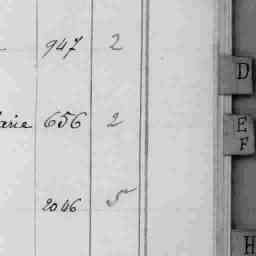 947 2
D
arie 656 2
E
F
2046 5
H